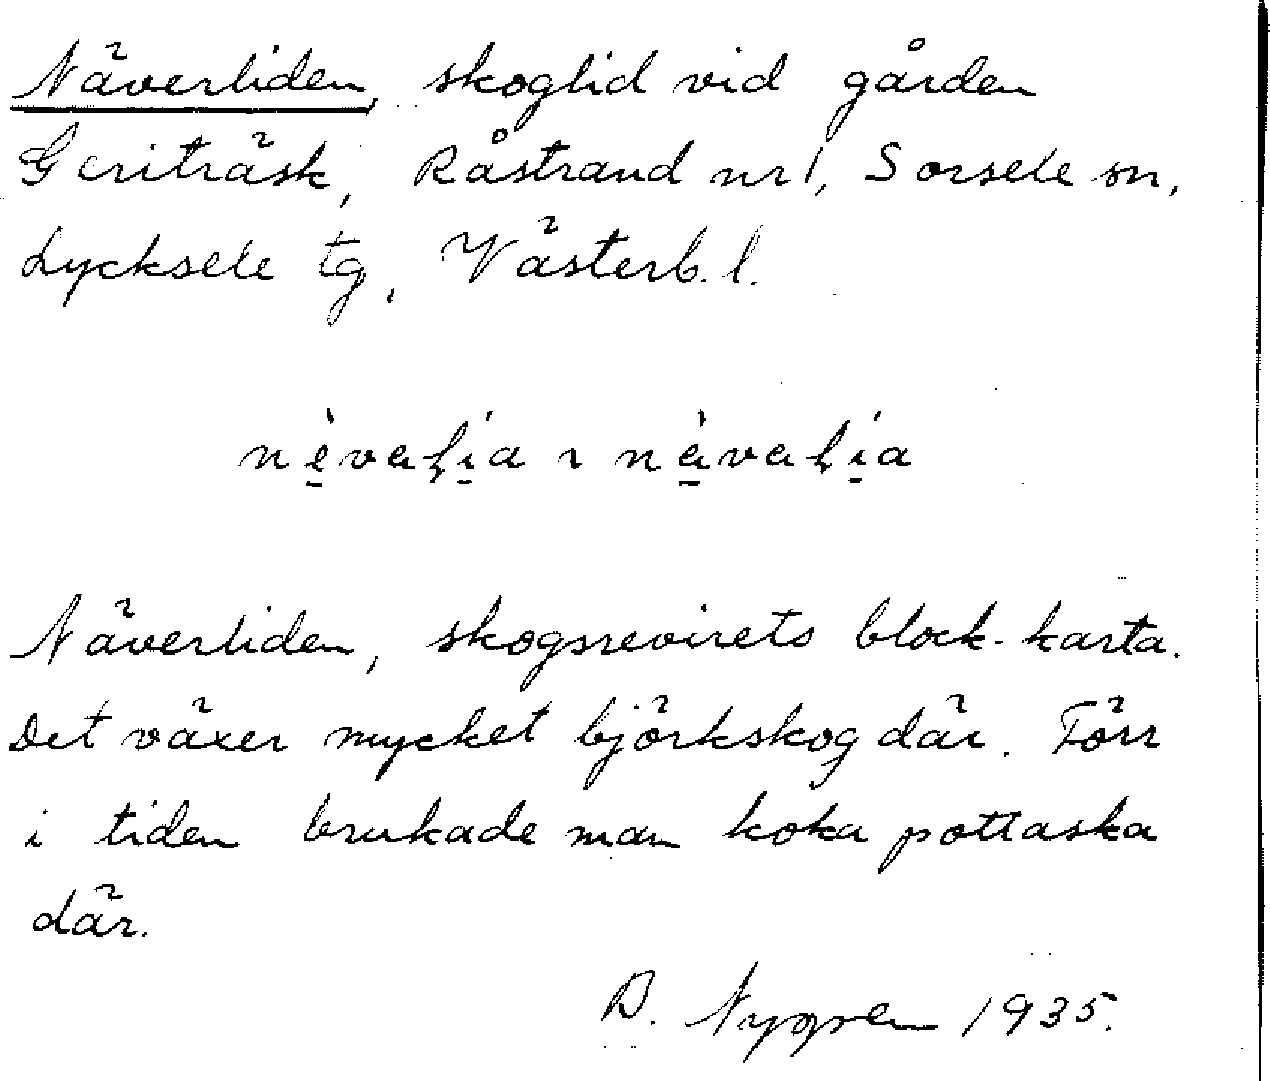 Näverliden, skoglid vid gården
Geriträsk, Råstrand nr 1, Sorsele sn,
Lycksele tg, Västerb. l.
Näverliden, skogsrevirets block-karta.
Det växer mycket björkskog där. Förr
i tiden brukade man koka pottaska
där.
D. Nygren 1935.